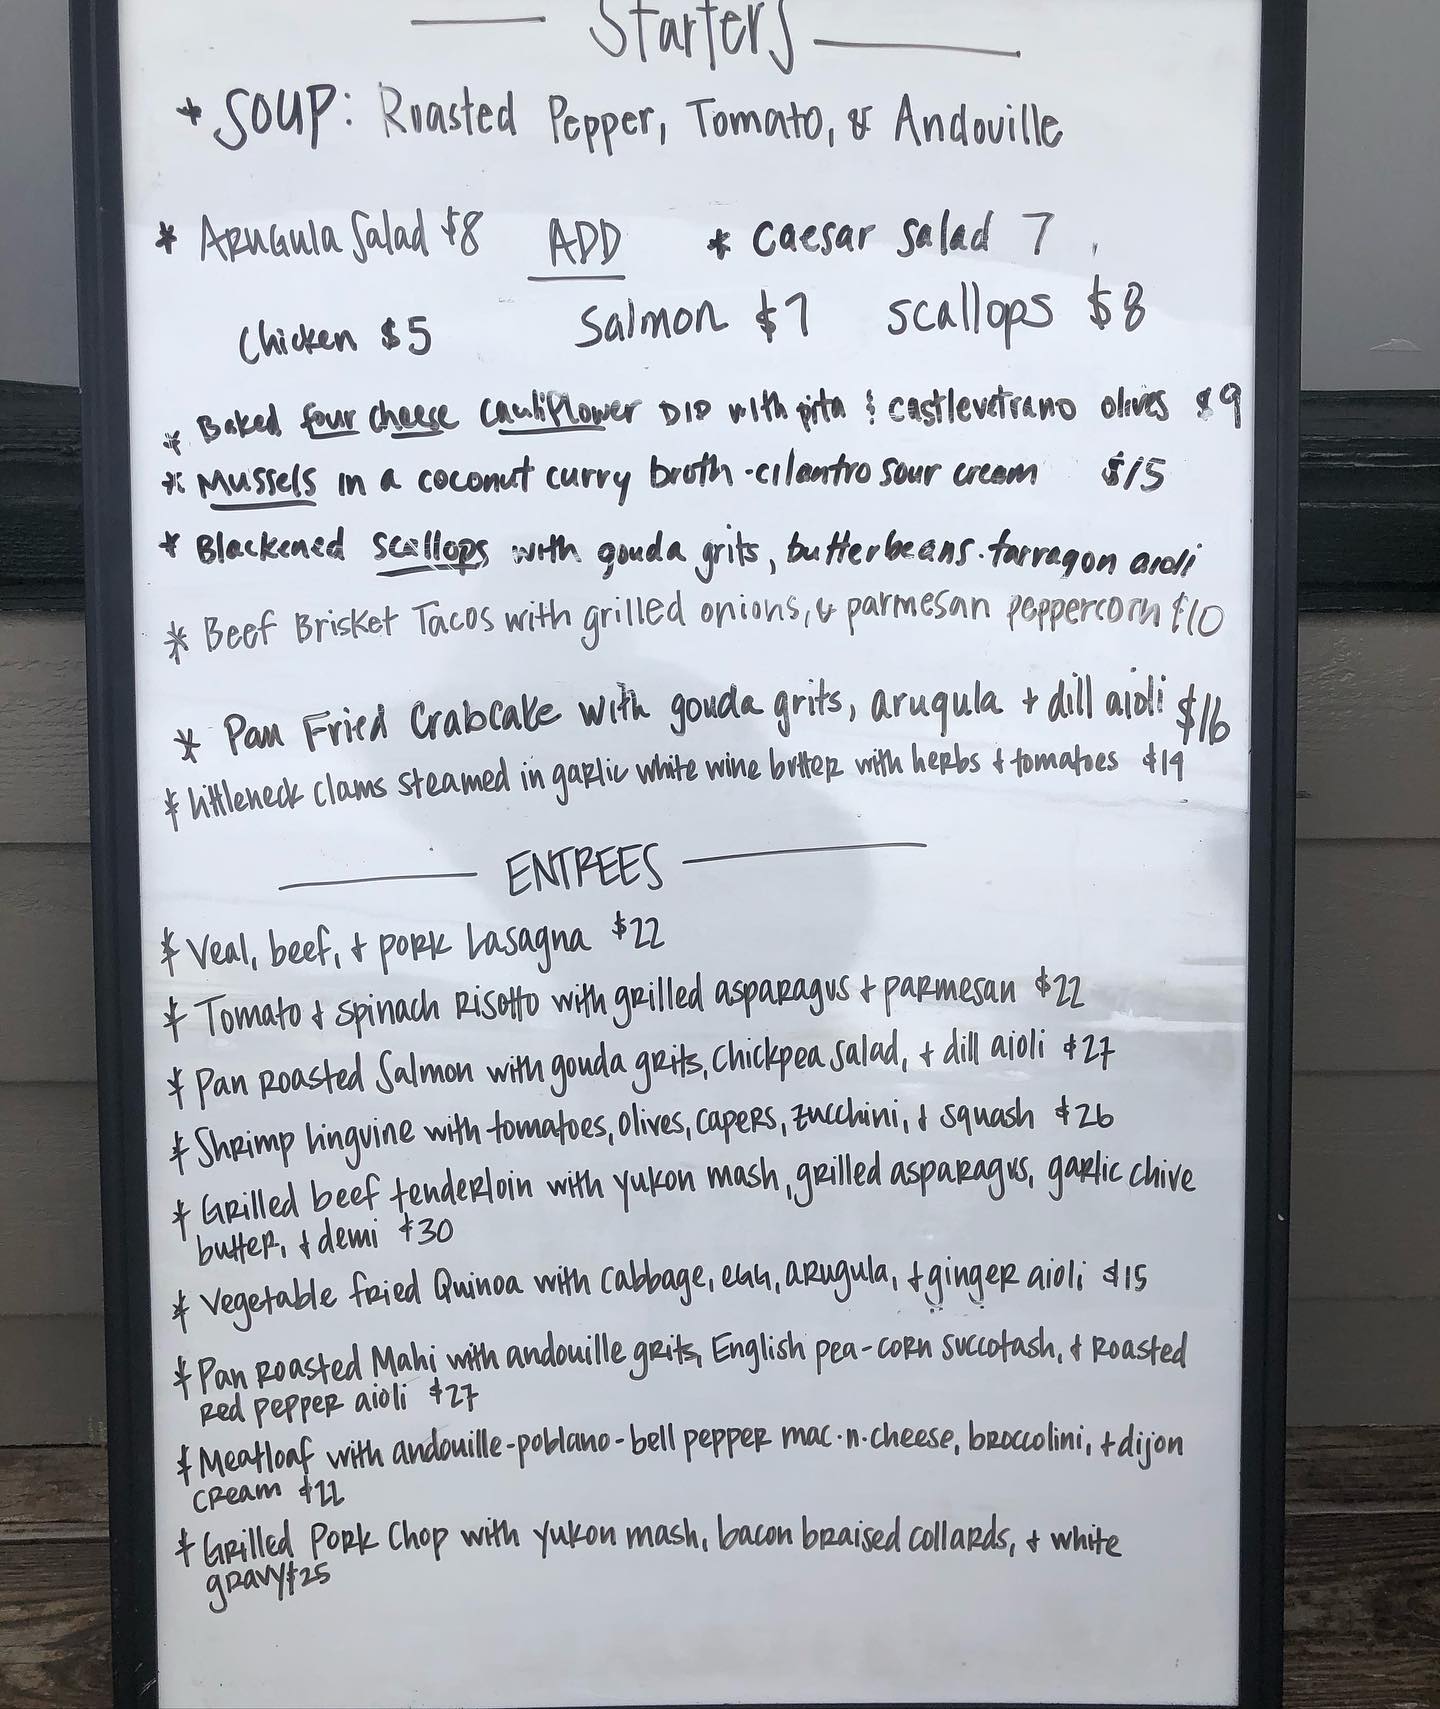 Starters
* SOUP: Roasted Pepper, Tomato, & Andouille
* Arugula Salad $8 ADD * Caesar salad 7
Chicken $5 Salmon $7 scallops $8
* Baked four cheese cauliflower DIP with pita & castlevetrano olives $9
* Mussels in a coconut curry broth - cilantro sour cream $15
* Blackened scallops with gouda grits, butterbeans - tarragon aioli
* Beef Brisket Tacos with grilled onions, & parmesan peppercorn $10
* Pan Fried Crabcake with gouda grits, arugula + dill aioli $16
* Littleneck clams steamed in garlic white wine butter with herbs + tomatoes $14
ENTREES
* Veal, beef, + pork Lasagna $22
* Tomato + spinach Risotto with grilled asparagus + parmesan $22
* Pan Roasted Salmon with gouda grits, chickpea salad, + dill aioli $27
* Shrimp Linguine with tomatoes, olives, capers, zucchini, + squash $26
* Grilled beef tenderloin with yukon mash, grilled asparagus, garlic chive
butter, + demi $30
* Vegetable fried Quinoa with cabbage, egg, arugula, + ginger aioli $15
* Pan Roasted Mahi with andouille grits, English pea-corn succotash, + Roasted
Red pepper aioli $27
* Meatloaf with andouille-poblano-bell pepper mac-n-cheese, broccolini, + dijon
cream $22
* Grilled Pork Chop with yukon mash, bacon braised collards, + white
gravy $25